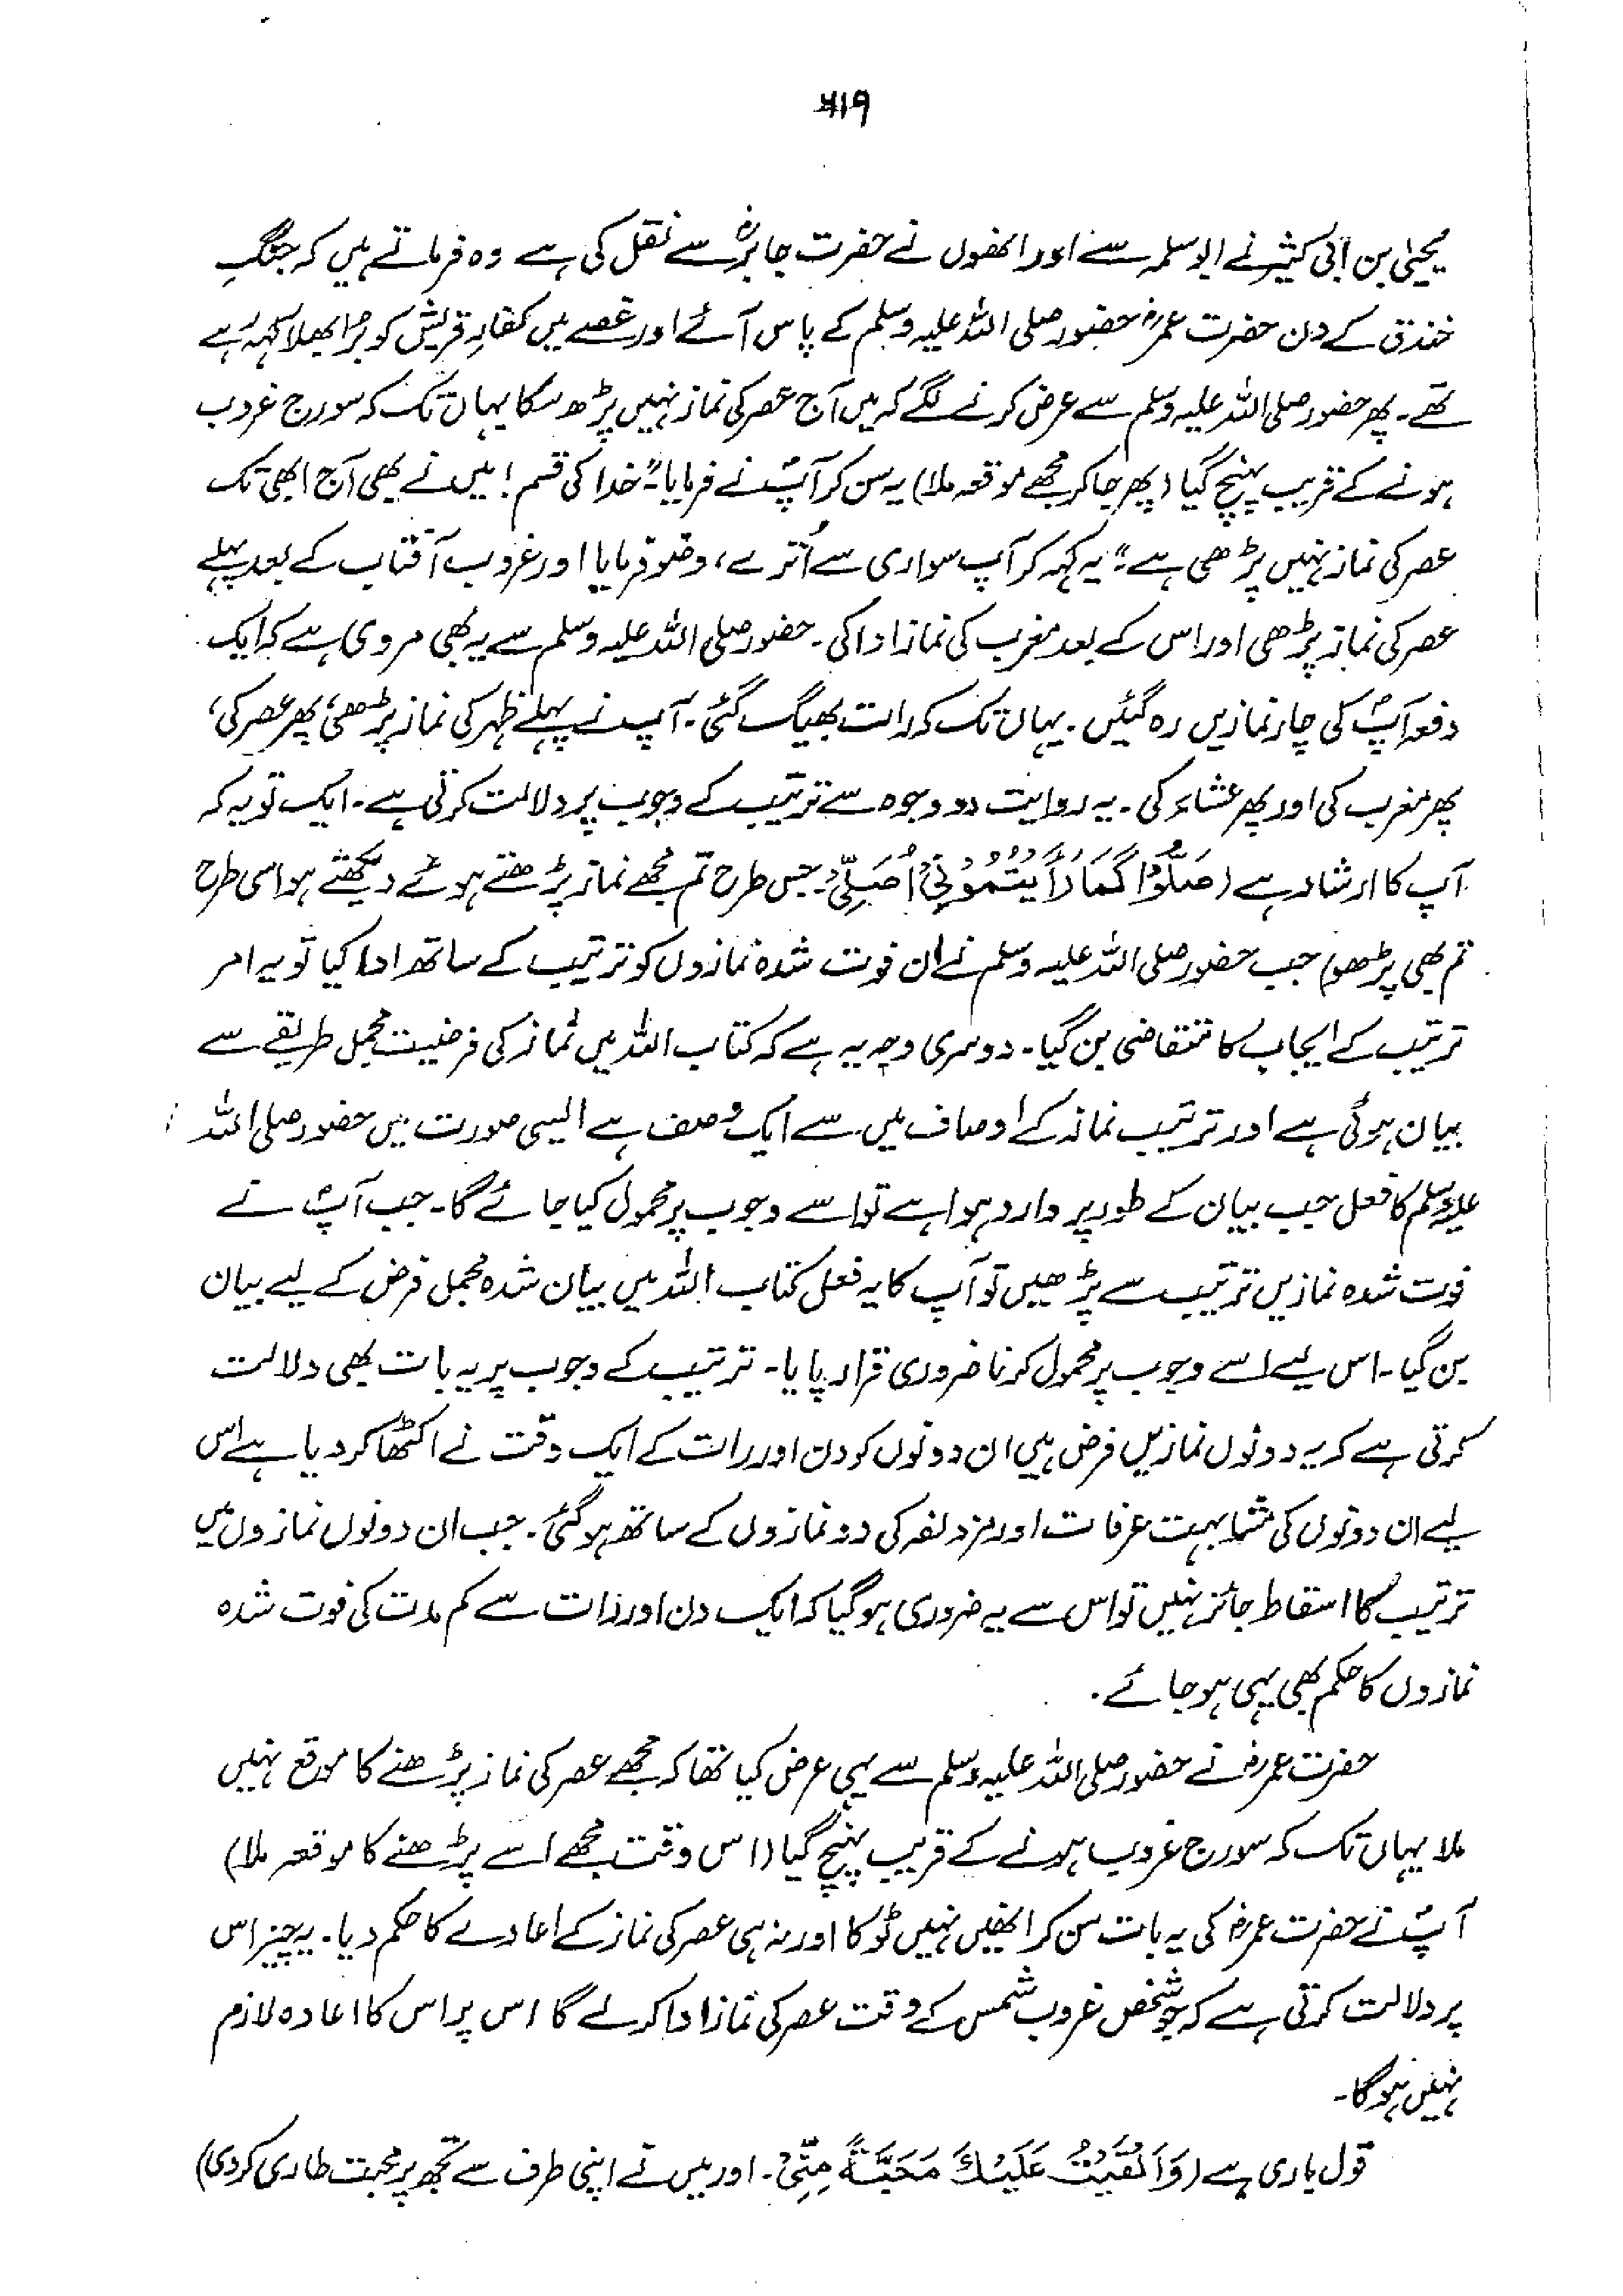 ۴۱۹
یحییٰ بن ابی کثیر نے ابو سلمہ سے اور انھوں نے حضرت جابرؓ سے نقل کی ہے وہ فرماتے ہیں کہ جنگِ
خندق کے دن حضرت عمرؓ حضور صلی اللہ علیہ وسلم کے پاس آئے اور غصے میں کفارِ قریش کو بُرا بھلا کہہ رہے
تھے۔ پھر حضور صلی اللہ علیہ وسلم سے عرض کرنے لگے کہ میں آج عصر کی نماز نہیں پڑھ سکا یہاں تک کہ سورج غروب
ہونے کے قریب پہنچ گیا (پھر جا کر مجھے موقعہ ملا) یہ سن کر آپؐ نے فرمایا "خدا کی قسم! میں نے بھی آج ابھی تک
عصر کی نماز نہیں پڑھی ہے"۔ یہ کہہ کر آپ سواری سے اُترے، وضو فرمایا اور غروب آفتاب کے بعد پہلے
عصر کی نماز پڑھی اور اس کے بعد مغرب کی نماز ادا کی۔ حضور صلی اللہ علیہ وسلم سے یہ بھی مروی ہے کہ ایک
دفعہ آپؐ کی چار نمازیں رہ گئیں۔ یہاں تک کہ رات بھیگ گئی۔ آپ نے پہلے ظہر کی نماز پڑھی، پھر عصر کی،
پھر مغرب کی اور پھر عشاء کی۔ یہ روایت دو وجوہ سے ترتیب کے وجوب پر دلالت کرتی ہے۔ ایک تو یہ کہ
آپ کا ارشاد ہے (صَلُّوْا كَمَا رَأَيْتُمُوْنِيْ اُصَلِّيْ۔ جس طرح تم مجھے نماز پڑھتے ہوئے دیکھتے ہو اسی طرح
تم بھی پڑھو) جب حضور صلی اللہ علیہ وسلم نے ان فوت شدہ نمازوں کو ترتیب کے ساتھ ادا کیا تو یہ امر
ترتیب کے ایجاب کا متقاضی بن گیا۔ دوسری وجہ یہ ہے کہ کتاب اللہ میں نماز کی فرضیت مجمل طریقے سے
بیان ہوئی ہے اور ترتیب نماز کے اوصاف میں سے ایک وصف ہے ایسی صورت میں حضور صلی اللہ
علیہ وسلم کا فعل جب بیان کے طور پر وارد ہوا ہے تو اسے وجوب پر محمول کیا جائے گا۔ جب آپؐ نے
فوت شدہ نمازیں ترتیب سے پڑھیں تو آپ کا یہ فعل کتاب اللہ میں بیان شدہ مجمل فرض کے لیے بیان
بن گیا۔ اس لیے اسے وجوب پر محمول کرنا ضروری قرار پایا۔ ترتیب کے وجوب پر یہ بات بھی دلالت
کرتی ہے کہ یہ دونوں نمازیں فرض ہیں ان دونوں کو دن اور رات کے ایک وقت نے اکٹھا کر دیا ہے اس
لیے ان دونوں کی مشابہت عرفات اور مزدلفہ کی دو نمازوں کے ساتھ ہوگئی۔ جب ان دونوں نمازوں میں
ترتیب کا اسقاط جائز نہیں تو اس سے یہ ضروری ہو گیا کہ ایک دن اور رات سے کم مدت کی فوت شدہ
نمازوں کا حکم بھی یہی ہو جائے۔
حضرت عمرؓ نے حضور صلی اللہ علیہ وسلم سے یہی عرض کیا تھا کہ مجھے عصر کی نماز پڑھنے کا موقع نہیں
ملا یہاں تک کہ سورج غروب ہونے کے قریب پہنچ گیا (اس وقت مجھے اسے پڑھنے کا موقعہ ملا)
آپؐ نے حضرت عمرؓ کی یہ بات سن کر انھیں نہیں ٹوکا اور نہ ہی عصر کی نماز کے اعادے کا حکم دیا۔ یہ چیز اس
پر دلالت کرتی ہے کہ جو شخص غروب شمس کے وقت عصر کی نماز ادا کرلے گا اس پر اس کا اعادہ لازم
نہیں ہوگا۔
قول باری ہے (وَاَلْقَيْتُ عَلَيْكَ مَحَبَّةً مِنِّيْ۔ اور میں نے اپنی طرف سے تجھ پر محبت طاری کر دی)